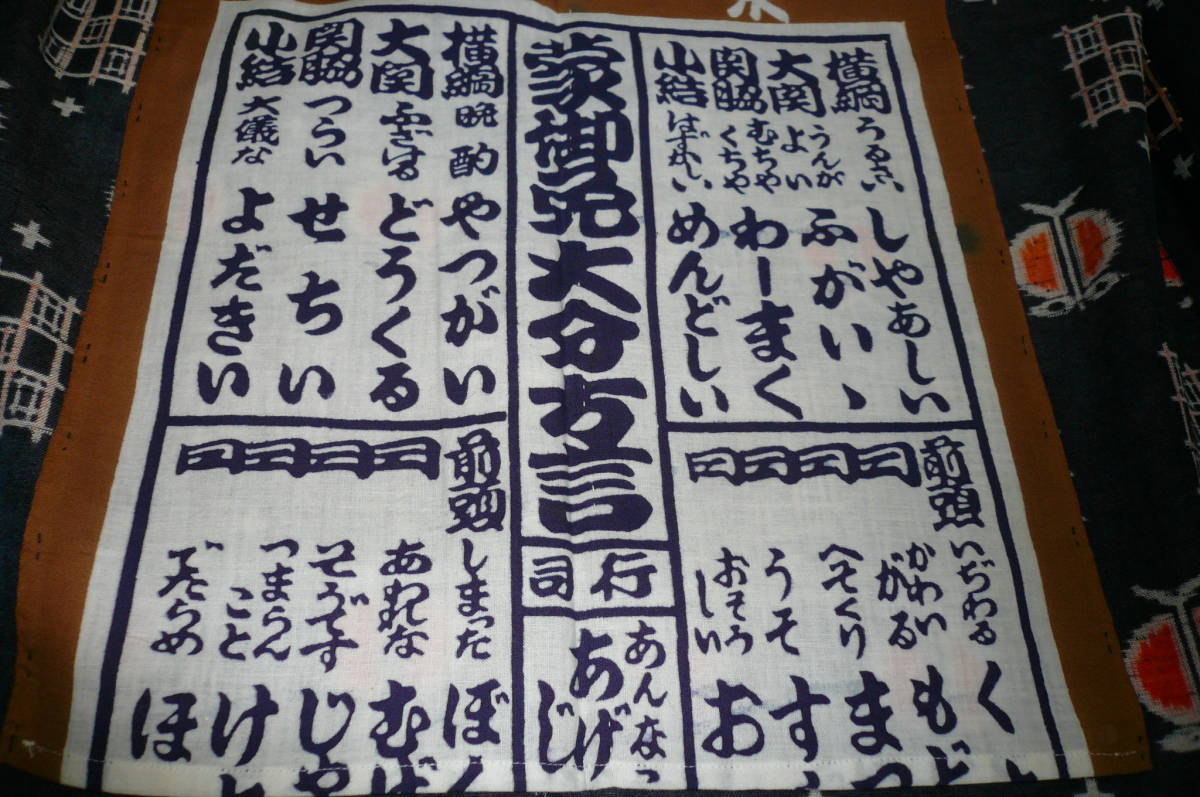 横綱 うるさい しやあしい
大関 うんがよい ふがいゝ
関脇 むちゃくちゃ わーまく
小結 はずかしい めんどしい
前頭 いぢわる く
同 かわいがる もど
同 へそくり まつ
同 うそ す
同 おそろしい お
蒙御免大分方言
行司
あんなっ
あげ
じ
横綱 晩酌 やつがい
大関 ふざける どうくる
関脇 つらい せちい
小結 大儀な よだきい
前頭 しまった ぼく
同 あわれな むげ
同 そうです じゃ
同 つまらんこと けと
同 でたらめ ほ